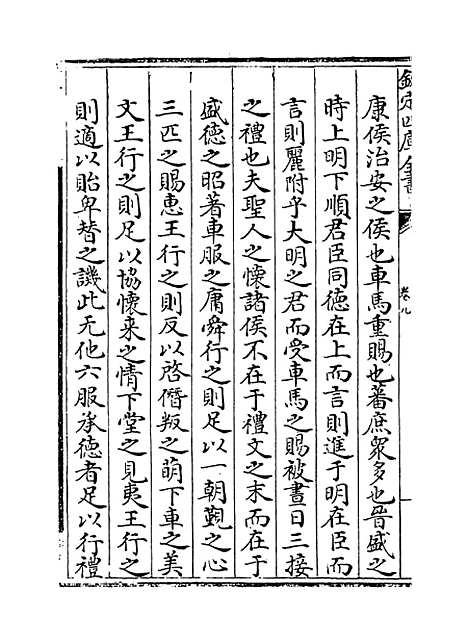 欽定四庫全書
卷九
康侯治安之侯也車馬重賜也蕃庶衆多也晉盛之
時上明下順君臣同德在上而言則進于明在臣而
言則麗附乎大明之君而受車馬之賜被晝日三接
之禮也夫聖人之懷諸侯不在于禮文之末而在于
盛德之昭著車服之庸舜行之則足以一朝覲之心
三匹之賜惠王行之則反以啓僭叛之萌下車之美
文王行之則足以協懷来之情下堂之見夷王行之
則適以貽卑替之譏此无他六服承德者足以行禮